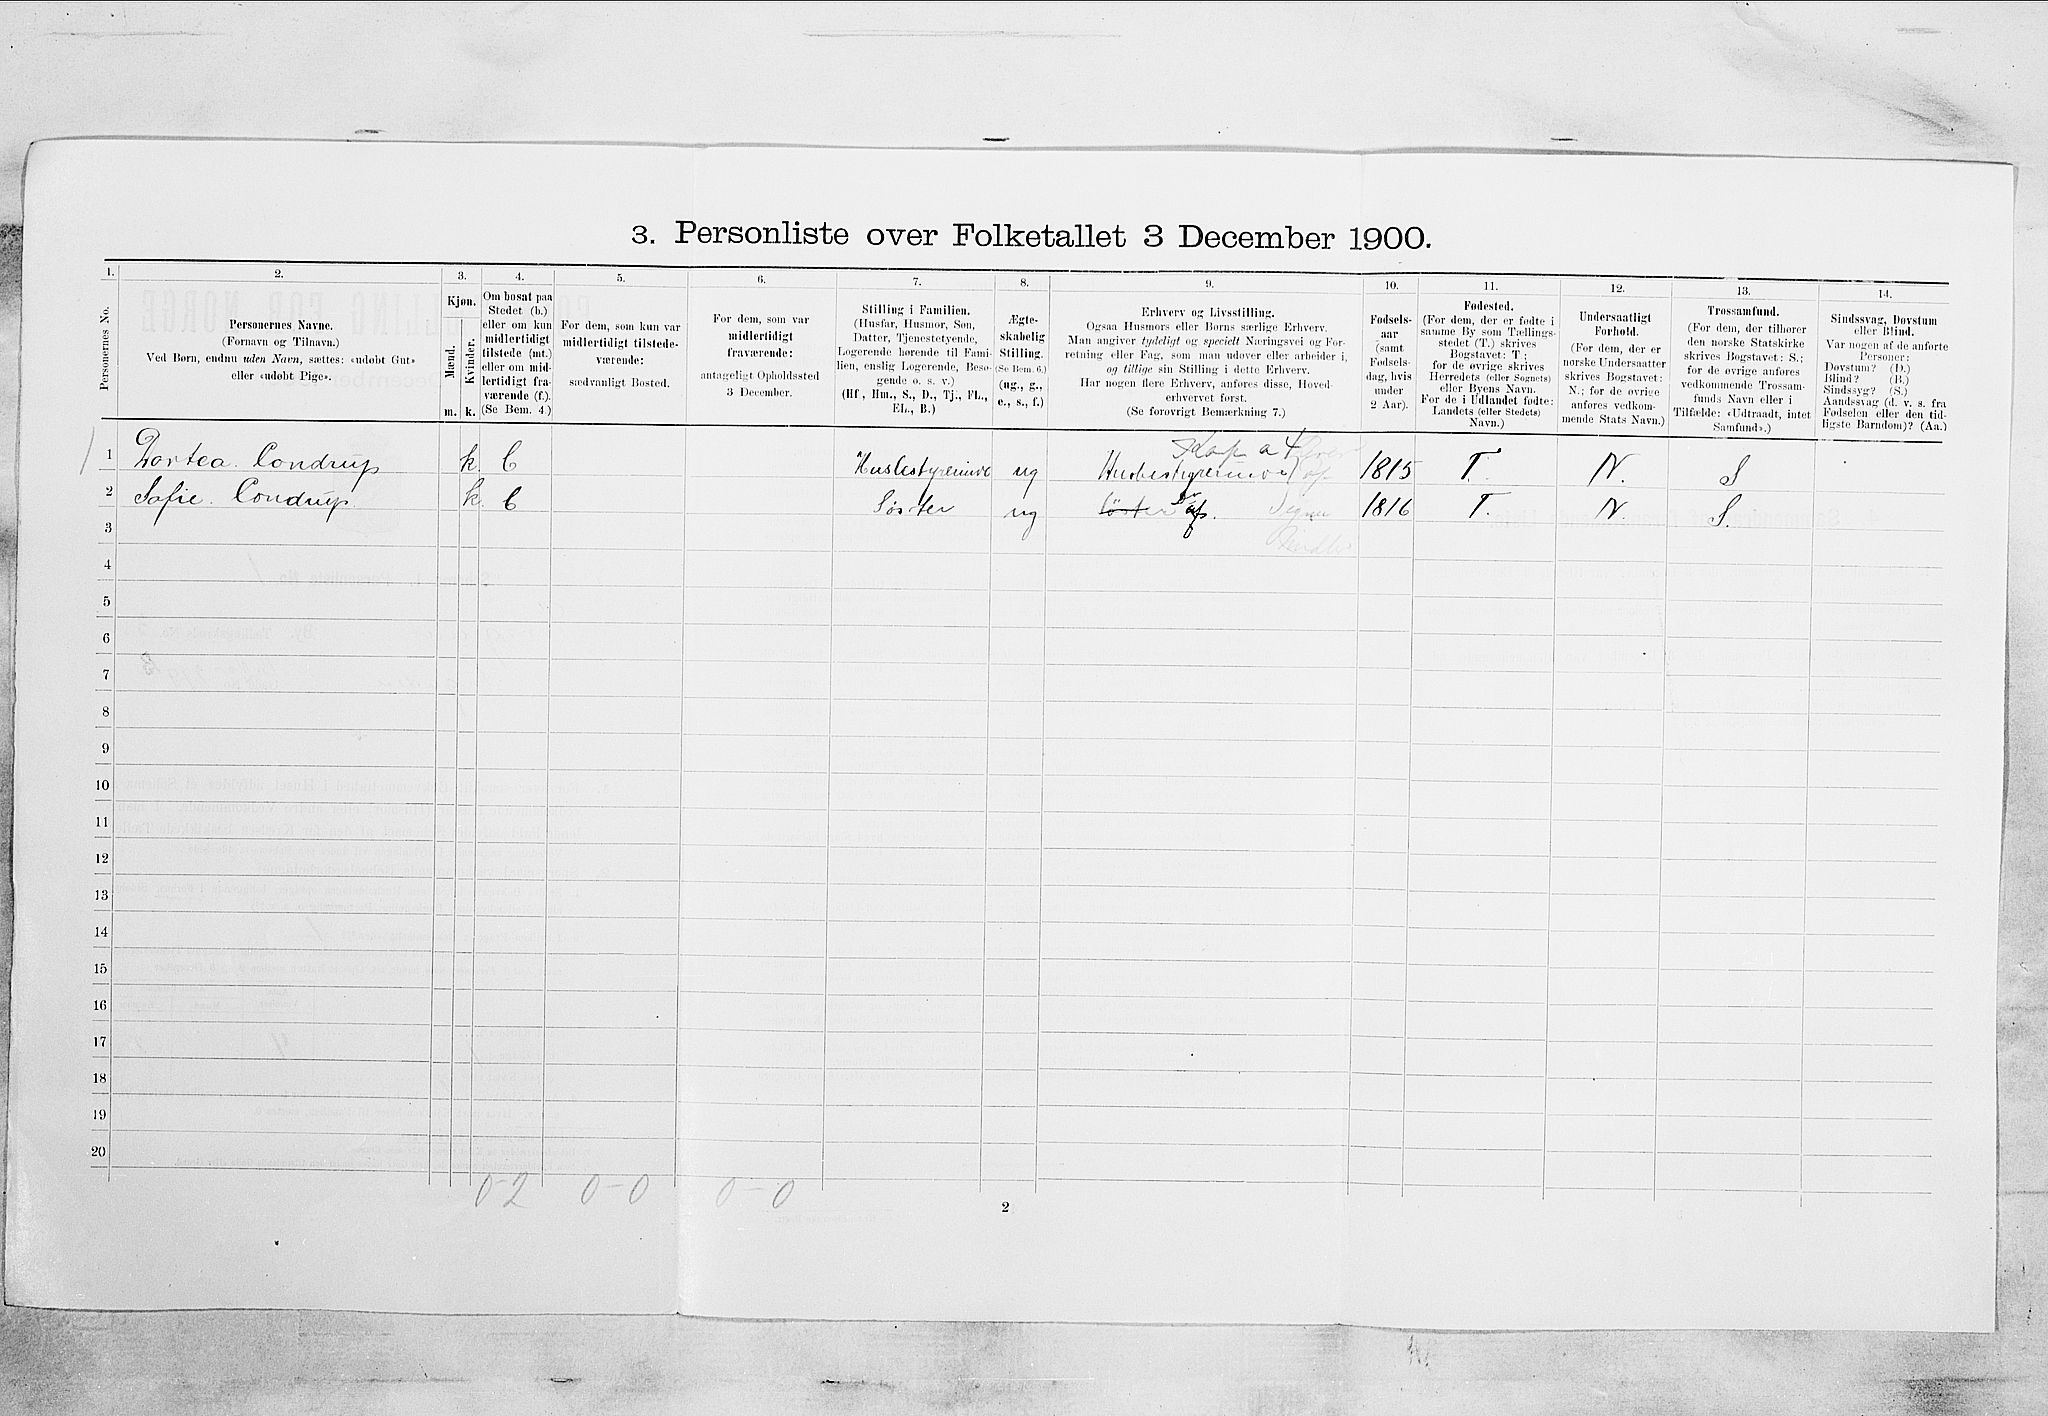 3. Personliste over Folketallet 3 December 1900.
1. 2. 3. 4. 5. 6. 7. 8. 9. 10. 11. 12. 13. 14.
Personernes No.
Personernes Navne.
(Fornavn og Tilnavn.)
Ved Børn, endnu uden Navn, sættes: «udøbt Gut»
eller «udøbt Pige».
Kjøn.
Mænd.
Kvinder.
m. k.
Om bosat paa
Stedet (b.)
eller om kun
midlertidigt
tilstede (mt.)
eller om mid-
lertidigt fra-
værende (f.).
(Se Bem. 4.)
For dem, som kun var
midlertidigt tilstede-
værende:
sædvanligt Bosted.
For dem, som var
midlertidigt
fraværende:
antageligt Opholdssted
3 December.
Stilling i Familien.
(Husfar, Husmor, Søn,
Datter, Tjenestetyende,
Logerende hørende til Fami-
lien, enslig Logerende, Besø-
gende o. s. v.)
(Hf, Hm., S., D., Tj., FL.,
EL., B.)
Ægte-
skabelig
Stilling.
(Se Bem. 6.)
(ug., g.,
e., s., f.)
Erhverv og Livsstilling.
Ogsaa Husmors eller Børns særlige Erhverv.
Man angiver tydeligt og specielt Næringsvei og For-
retning eller Fag, som man udøver eller arbeider i,
og tillige sin Stilling i dette Erhverv.
Har nogen flere Erhverv, anføres disse, Hoved-
erhvervet først.
(Se forøvrigt Bemærkning 7.)
Fødsels-
aar
(samt
Fødsels-
dag, hvis
under
2 Aar).
Fødested.
(For dem, der er fødte i
samme By som Tællings-
stedet (T.) skrives
Bogstavet: T;
for de øvrige skrives
Herredets (eller Sognets)
eller Byens Navn.
For de i Udlandet fødte:
Landets (eller Stedets)
Navn.)
Undersaatligt
Forhold.
(For dem, der er
norske Undersaatter
skrives Bogstavet:
N.; for de øvrige
anføres vedkom-
mende Stats Navn.)
Trossamfund.
(For dem, der tilhører
den norske Statskirke
skrives Bogstavet: S.;
for de øvrige anføres
vedkommende Trossam-
funds Navn eller i
Tilfælde: «Udtraadt, intet
Samfund».)
Sindssvag, Døvstum
eller Blind.
Var nogen af de anførte
Personer:
Døvstum? (D.)
Blind? (B.)
Sindssyg? (S.)
Aandssvag (d. v. s. fra
Fødselen eller den tid-
ligste Barndom)? (Aa.)
1 Dortea. Condrup k. b Husbestyrerinde ug 1815 T. N. S
2 Sofie. Condrup k. b Søster ug Søster 1816 T. N. S.
3
4
5
6
7
8
9
10
11
12
13
14
15
16
17
18
19
20
0-2 0-0 0-0
2